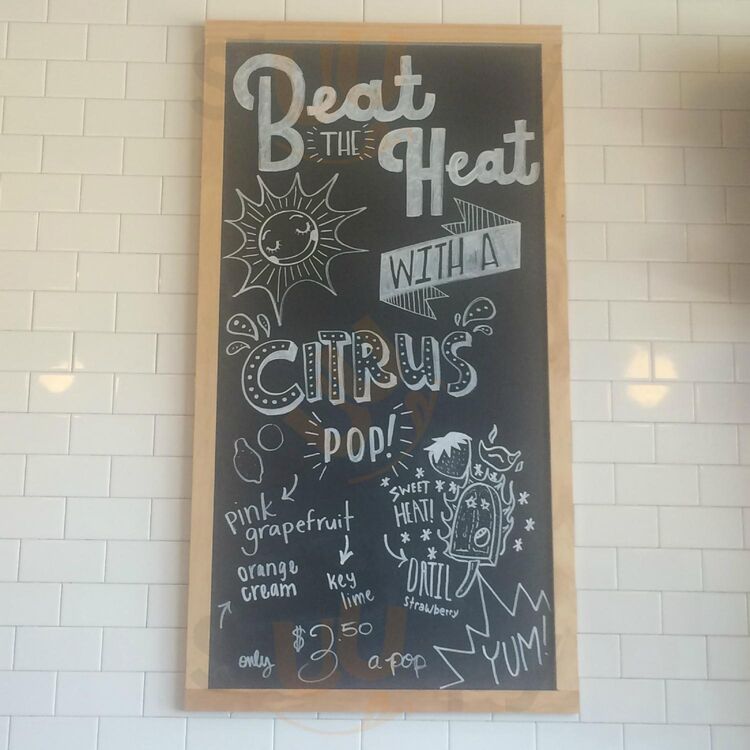 Beat
THE
Heat
WITH A
CITRUS
POP!
pink
grapefruit
orange
cream
key
lime
SWEET
HEAT!
DATIL
strawberry
only $3.50 a pop
YUM!